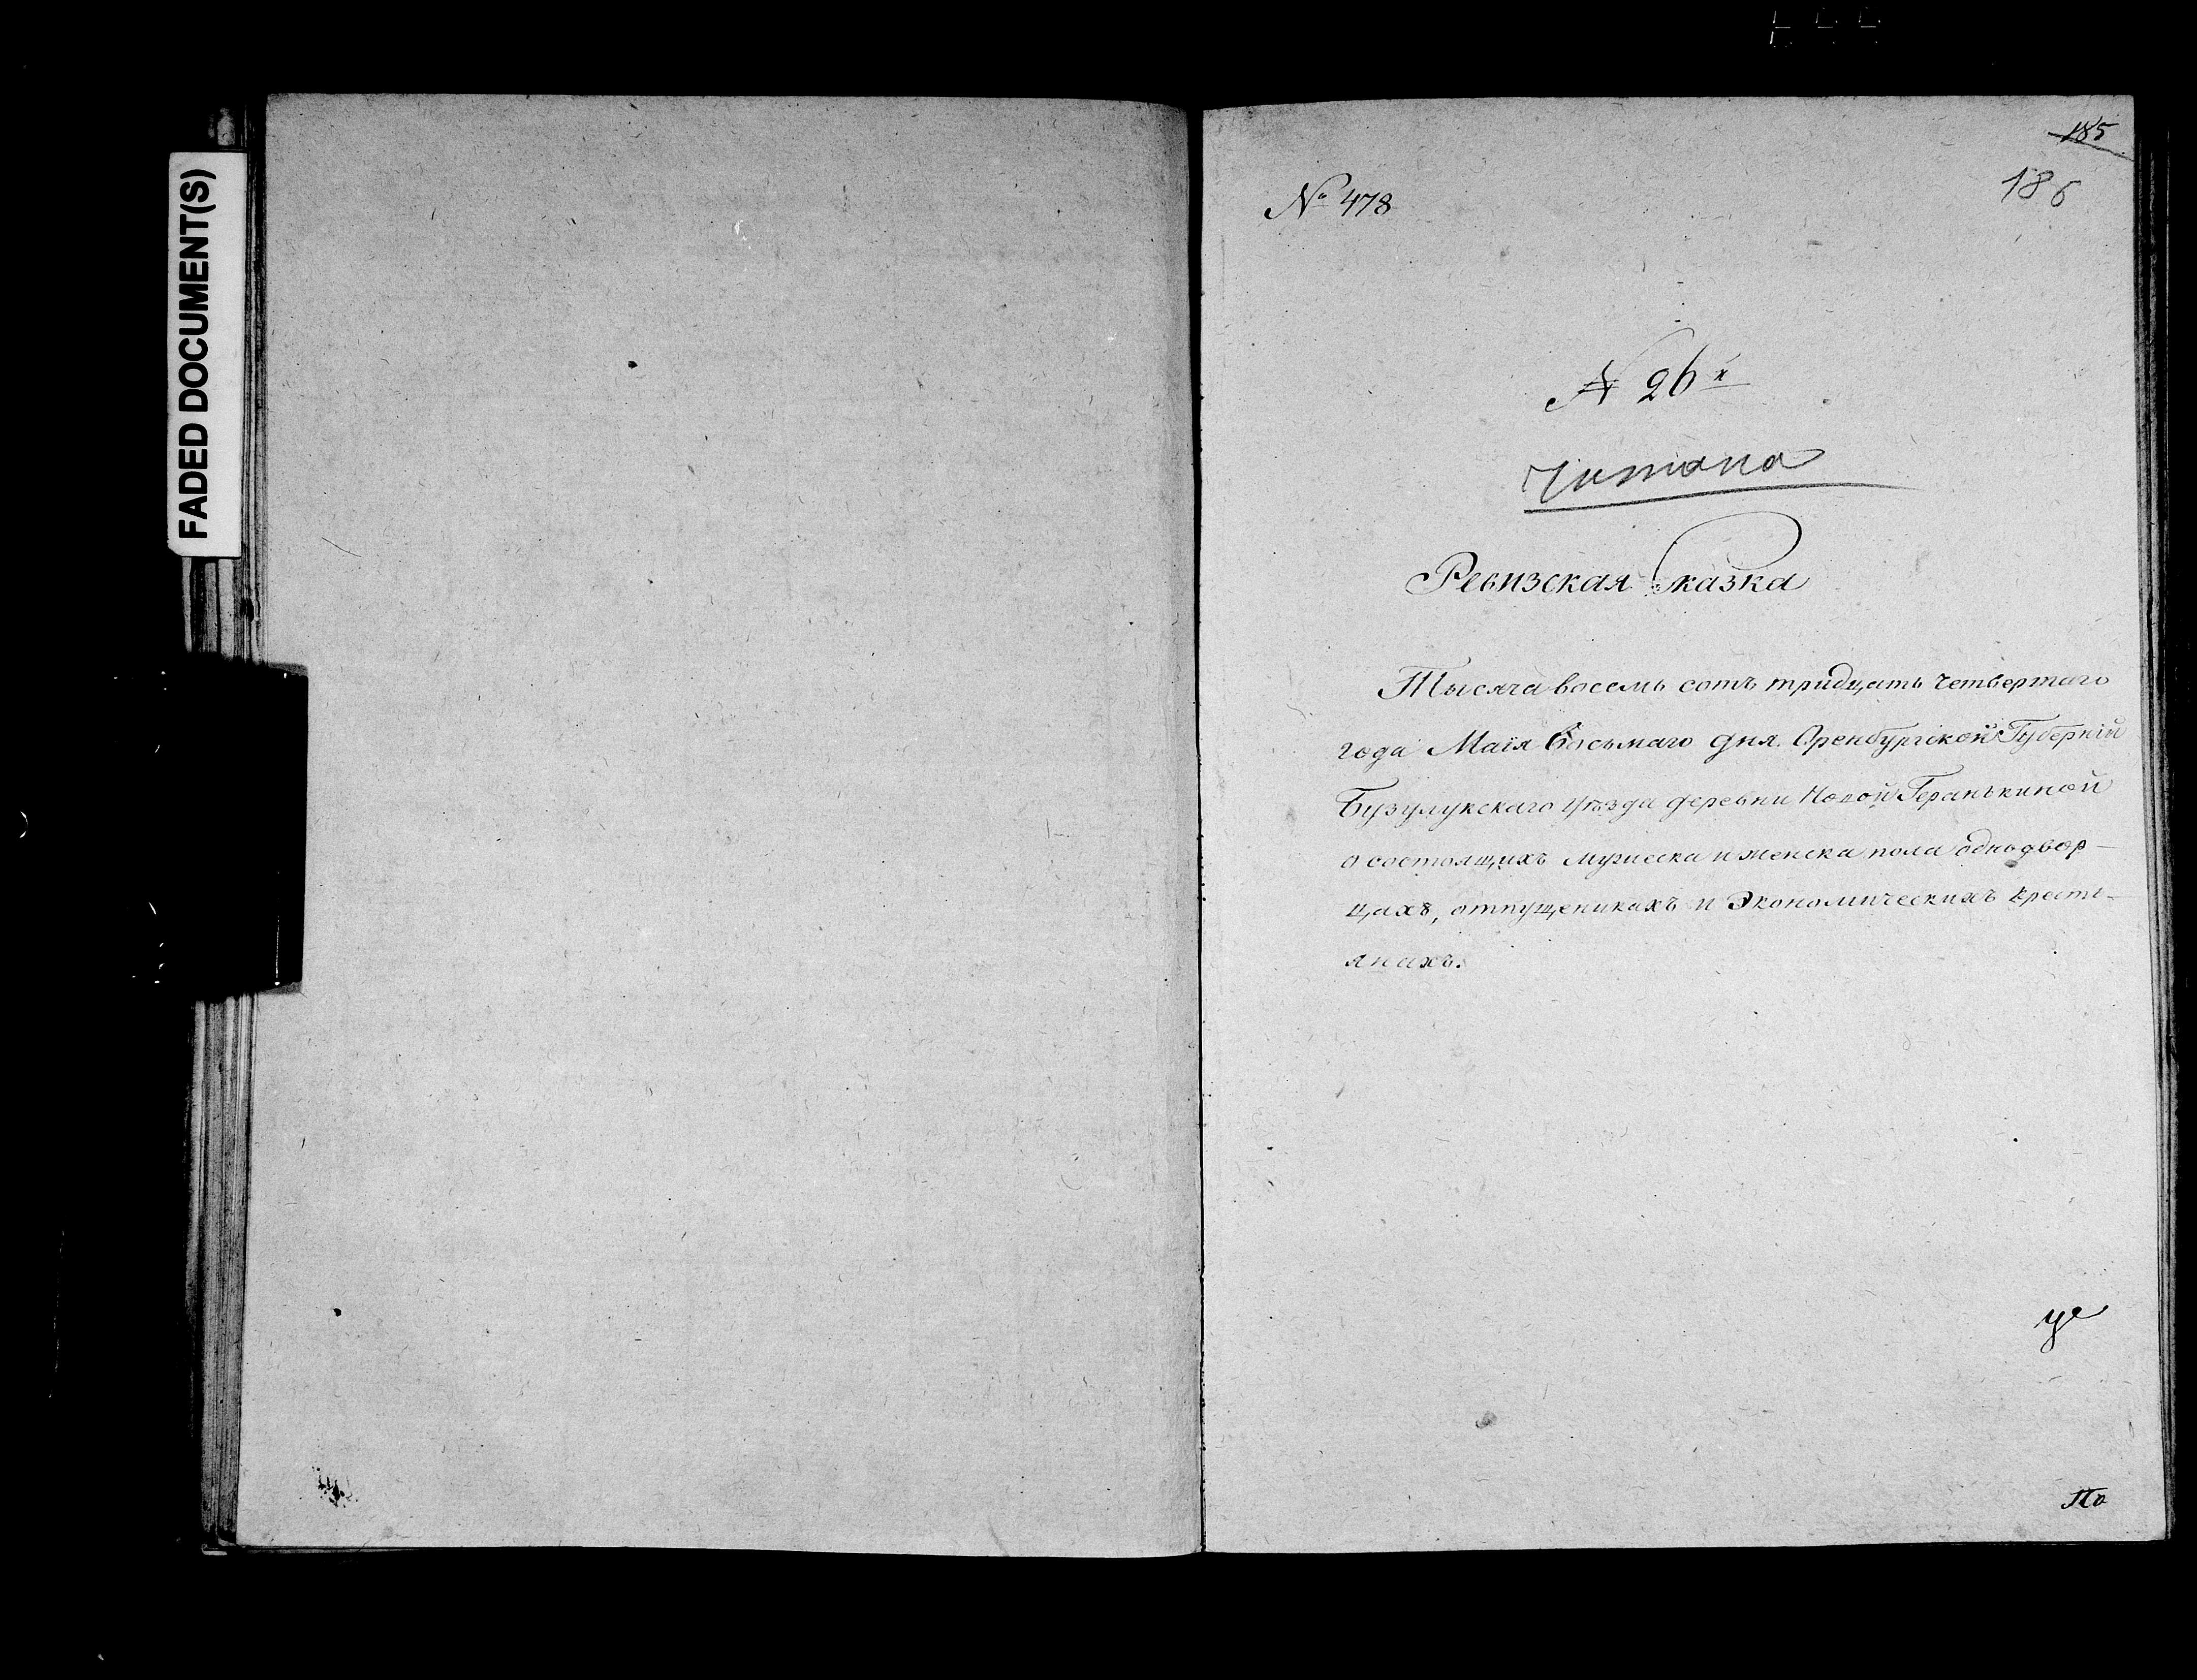 FADED DOCUMENT(S)
185
186
№ 478
№ 26й
Читана
Ревизская Сказка
Тысяча восемь сотъ тридцать четвертаго
года Маія Восьмаго дня. Оренбургской Губерніи
Бузулукскаго уѣзда деревни Новой Геранькиной
о состоящихъ мужеска и женска пола однодвор-
цахъ, отпущеникахъ и Экономическихъ кресть-
янахъ.
По